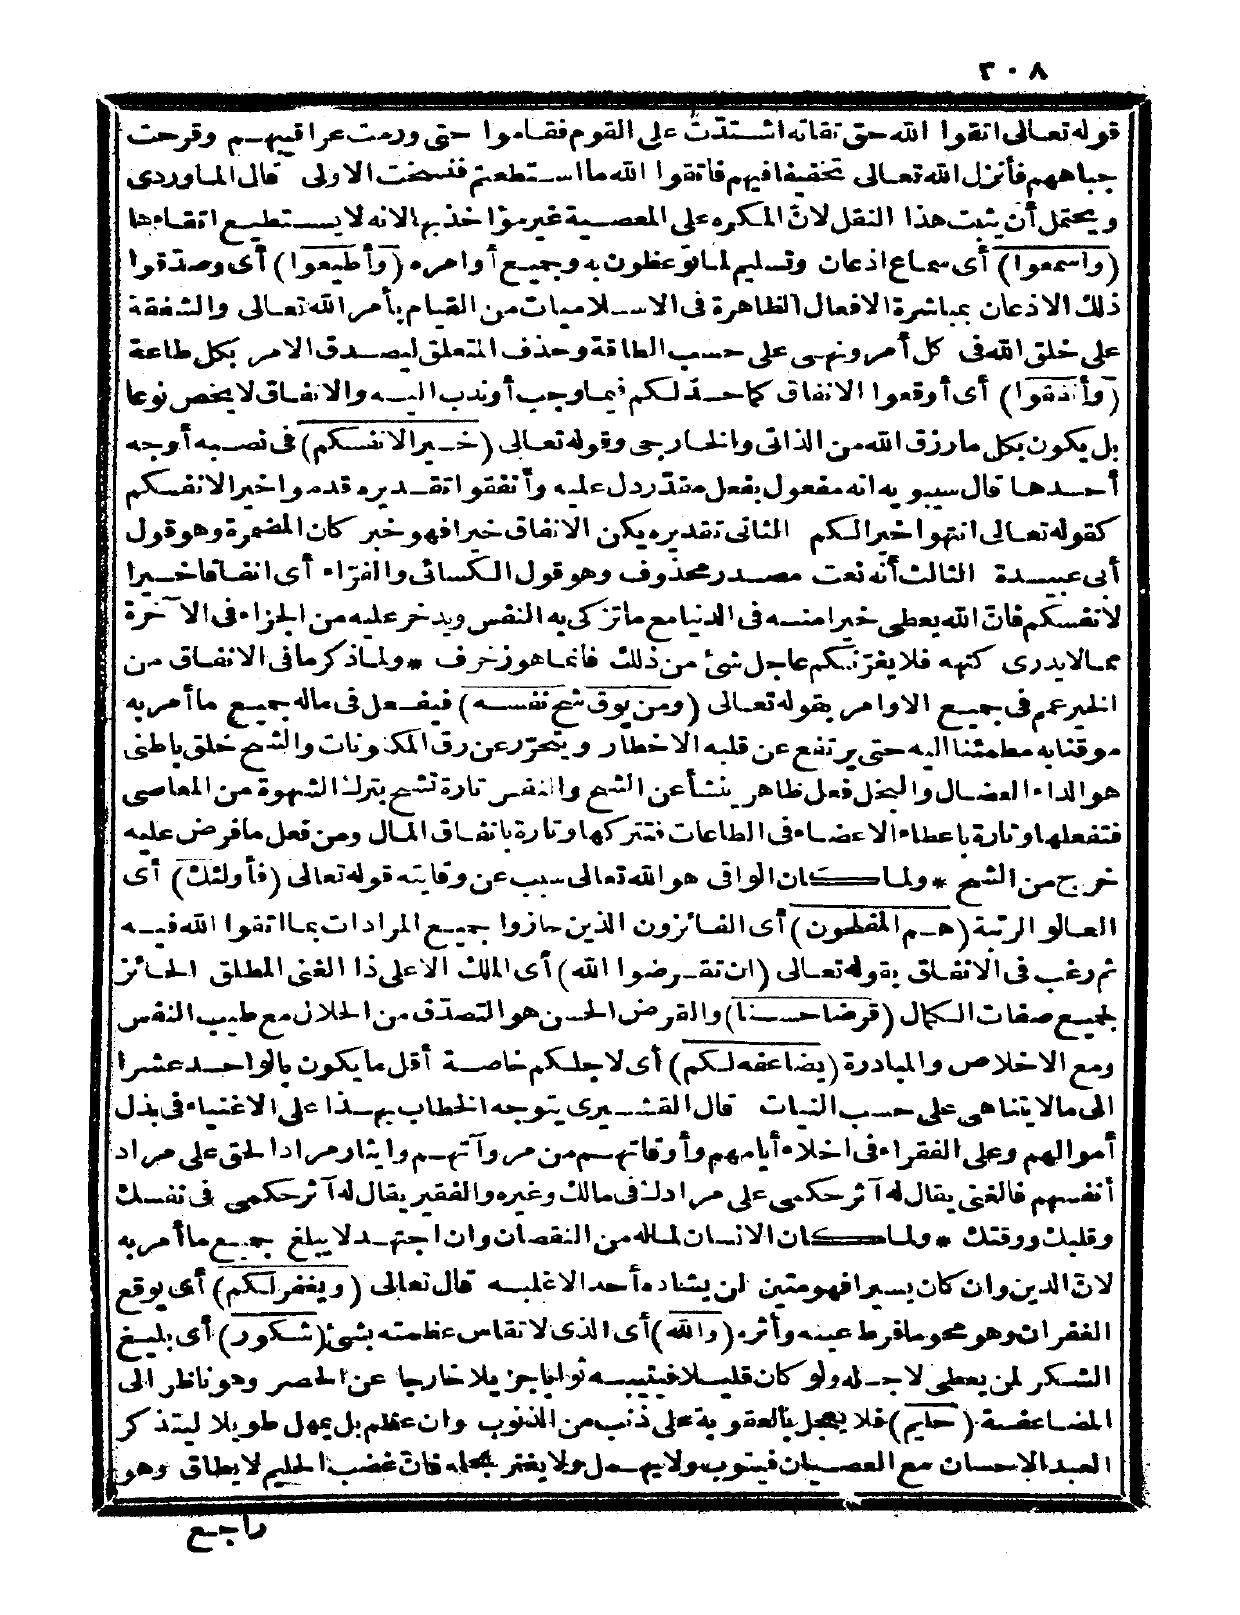 ٣٠٨
قوله تعالى اتقوا الله حق تقاته اشتدّت على القوم فقاموا حتى ورمت عراقيبهم وقرحت
جباههم فأنزل الله تعالى تخفيفا فيهم فاتقوا الله ما استطعتم فنسخت الاولى قال الماوردى
ويحتمل أن يثبت هذا النقل لانّ المكره على المعصية غير مؤاخذ بها لانه لا يستطيع اتقاءها
(واسمعوا) أى سماع اذعان وتسليم لما توعظون به وجميع أوامره (وأطيعوا) أى وصدّقوا
ذلك الاذعان بمباشرة الافعال الظاهرة فى الاسلاميات من القيام بأمر الله تعالى والشفقة
على خلق الله فى كل أمر ونهى على حسب الطاقة وحذف المتعلق ليصدق الامر بكل طاعة
(وأنفقوا) أى أوقعوا الانفاق كما حدّ لكم فيما وجب أو ندب اليه والانفاق لا يخص نوعا
بل يكون بكل ما رزق الله من الذاتى والخارجى وقوله تعالى (خيرا لانفسكم) فى نصبه أوجه
أحدها قال سيبويه انه مفعول بفعل مقدّر دل عليه وأنفقوا تقديره قدموا خيرا لانفسكم
كقوله تعالى انتهوا خيرا لكم الثانى تقديره يكن الانفاق خيرا فهو خبر كان المضمرة وهو قول
أبى عبيدة الثالث أنه نعت مصدر محذوف وهو قول الكسائى والفرّاء أى انفاقا خيرا
لانفسكم فانّ الله يعطى خيرا منه فى الدنيا مع ما تزكى به النفس ويدخر عليه من الجزاء فى الآخرة
مما لا يدرى كنهه فلا يغرّنكم عاجل شئ من ذلك فانما هو زخرف * ولما ذكر ما فى الانفاق من
الخير عم فى جميع الاوامر بقوله تعالى (ومن يوق شح نفسه) فيفعل فى ماله جميع ما أمر به
موقنا به مطمئنا اليه حتى يرتفع عن قلبه الاخطار ويتحرّر عن رق المكونات والشح خلق باطنى
هو الداء العضال والبخل فعل ظاهر ينشأ عن الشح والنفس تارة تشح بترك الشهوة من المعاصى
فتفعلها وتارة باعطاء الاعضاء فى الطاعات فتتركها وتارة بانفاق المال ومن فعل ما فرض عليه
خرج من الشح * ولما كان الواقى هو الله تعالى سبب عن وقايته قوله تعالى (فأولئك) أى
العالو الرتبة (هم المفلحون) أى الفائزون الذين حازوا جميع المرادات بما اتقوا الله فيه
ثم رغب فى الانفاق بقوله تعالى (ان تقرضوا الله) أى الملك الاعلى ذا الغنى المطلق الحائز
لجميع صفات الكمال (قرضا حسنا) والقرض الحسن هو التصدّق من الحلال مع طيب النفس
ومع الاخلاص والمبادرة (يضاعفه لكم) أى لاجلكم خاصة أقل ما يكون بالواحد عشرا
الى ما لا يتناهى على حسب النيات قال القشيرى يتوجه الخطاب بهذا على الاغنياء فى بذل
أموالهم وعلى الفقراء فى اخلاء أيامهم وأوقاتهم من مرآتهم وايثار مراد الحق على مراد
أنفسهم فالغنى يقال له آثر حكمى على مرادك فى مالك وغيره والفقير يقال له آثر حكمى فى نفسك
وقلبك ووقتك * ولما كان الانسان لما له من النقصان وان اجتهد لا يبلغ جميع ما أمر به
لانّ الدين وان كان يسيرا فهو متين لن يشاده أحد الا غلبه قال تعالى (ويغفر لكم) أى يوقع
الغفران وهو محو ما فرط عينه وأثره (والله) أى الذى لا تقاس عظمته بشئ (شكور) أى بليغ
الشكر لمن يعطى لاجله ولو كان قليلا فيثيبه ثوابا جزيلا خارجا عن الحصر وهو ناظر الى
المضاعفة (حليم) فلا يعجل بالعقوبة على ذنب من الذنوب وان عظم بل يمهل طويلا ليتذكر
العبد الاحسان مع العصيان فيتوب ولا يهمل ولا يغتر بحلمه فانّ غضب الحليم لا يطاق وهو
راجع